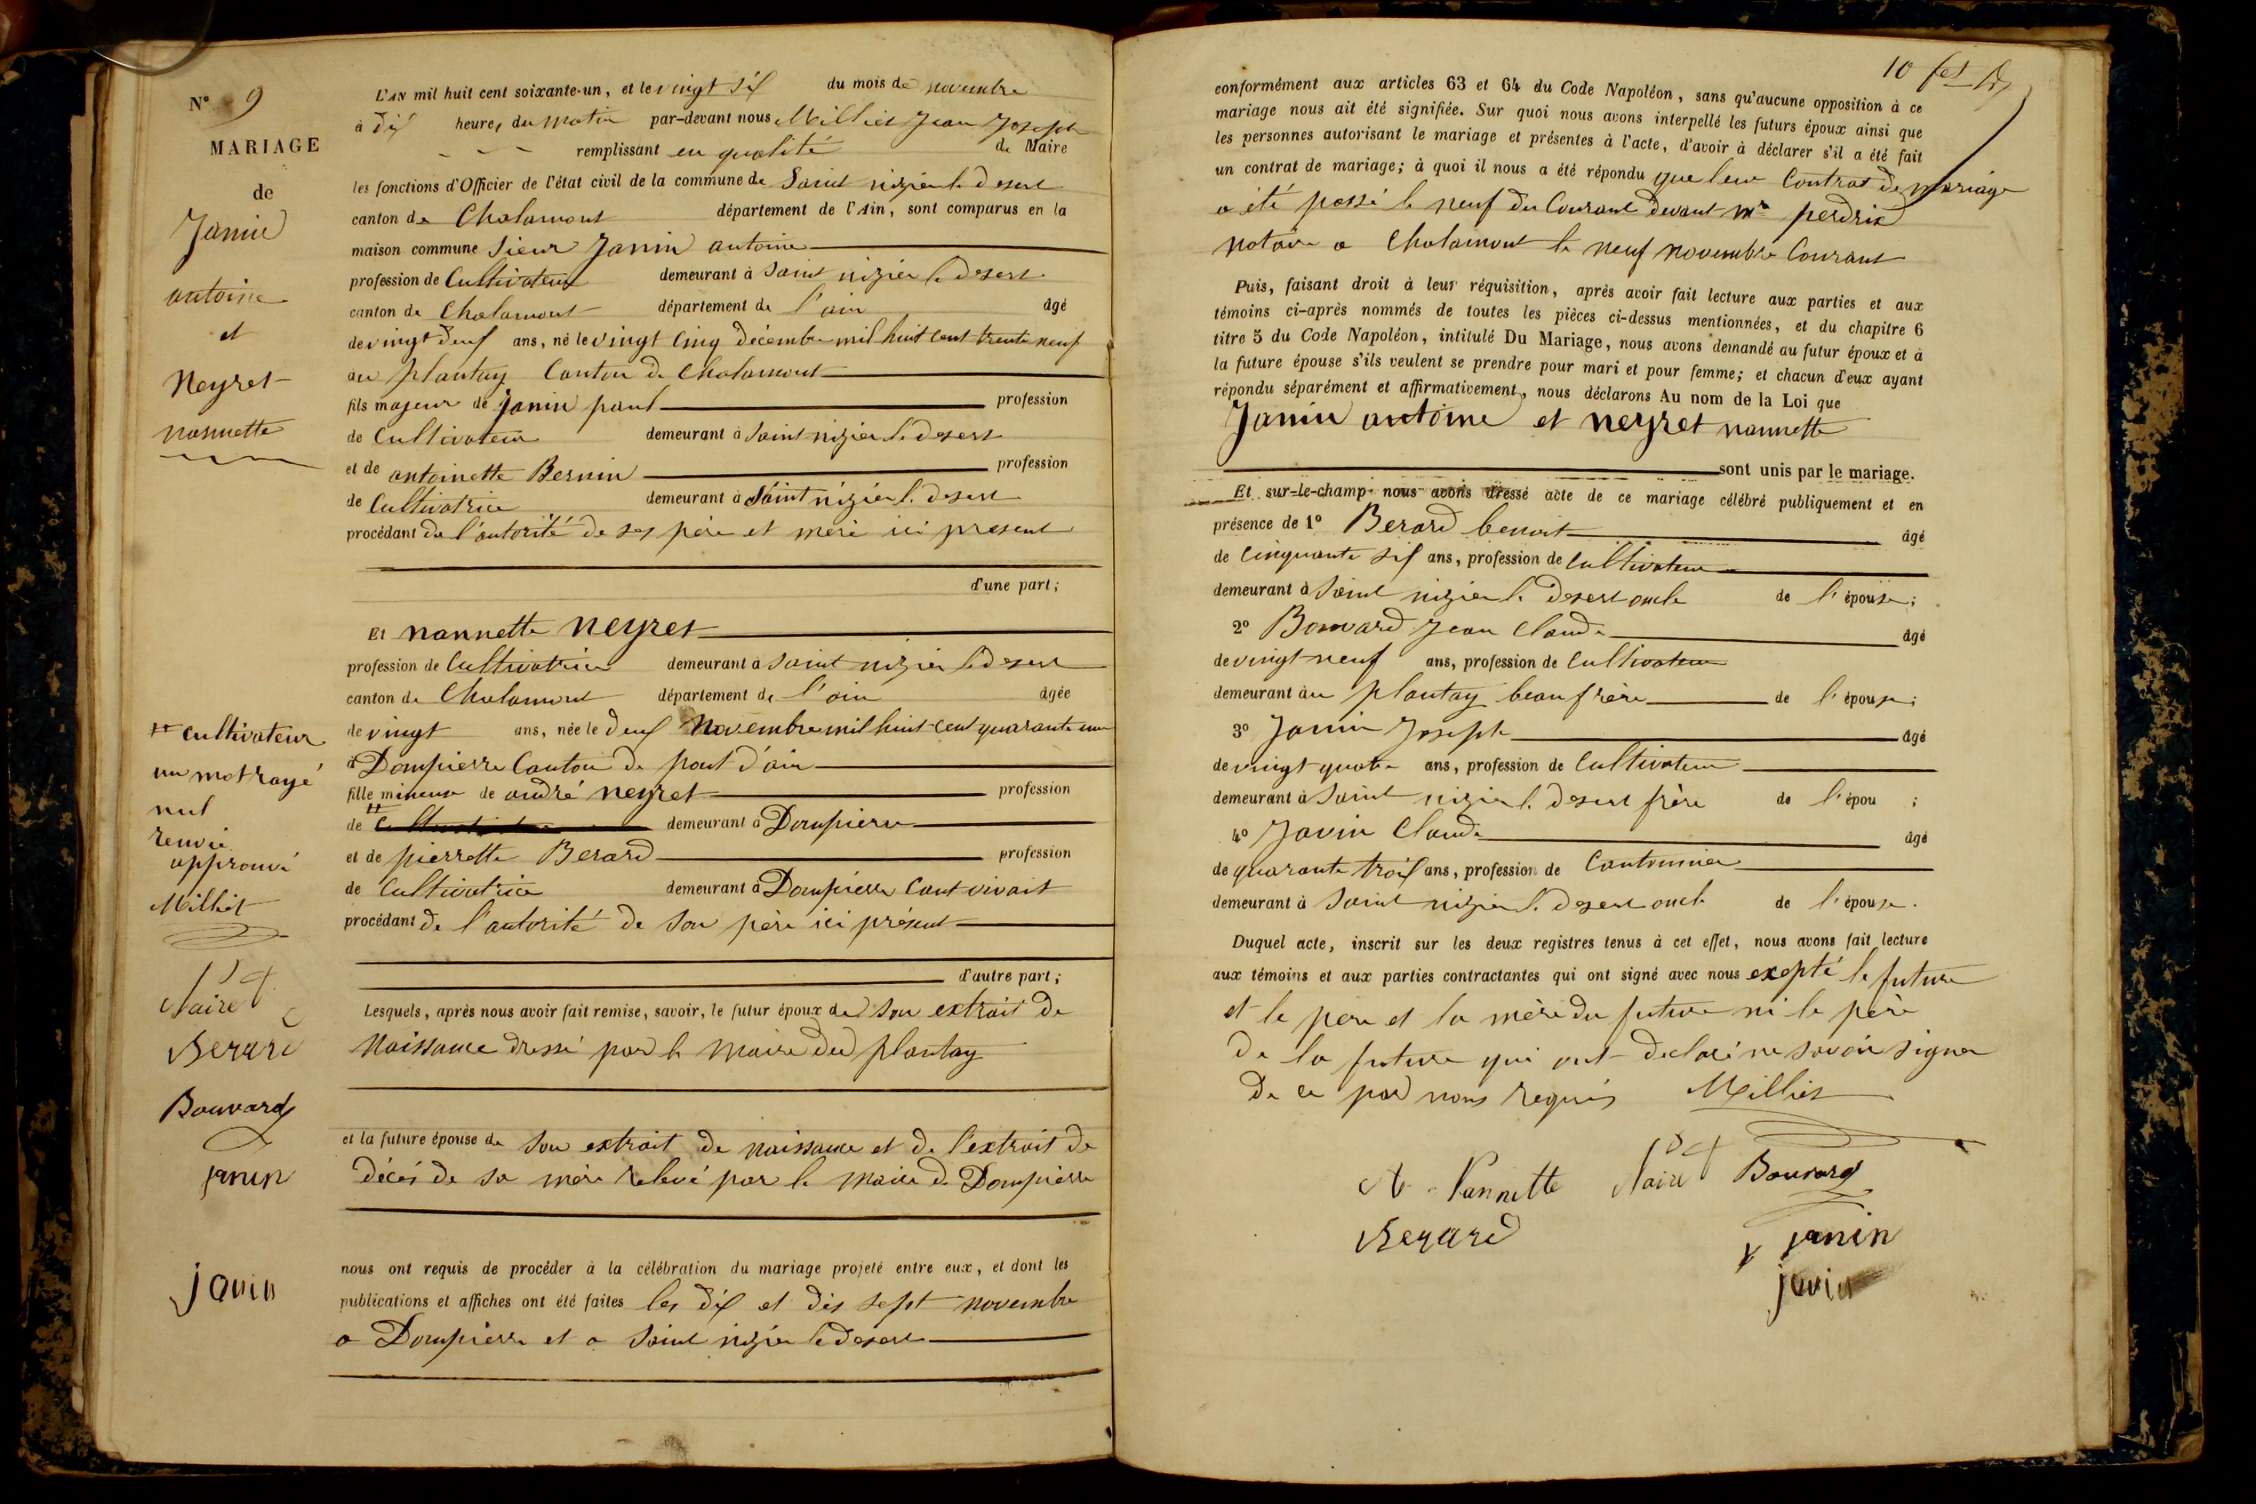 N° 9
MARIAGE
de
Janin
antoine
et
Neyret
nannette
L'AN mil huit cent soixante-un, et le vingt six du mois de novembre
à dix heures du matin par-devant nous Milliet Jean Joseph
remplissant en qualité de Maire
les fonctions d'Officier de l'état civil de la commune de Saint nizier le desert
canton de Chalamont département de l'Ain, sont comparus en la
maison commune Sieur Janin antoine
profession de Cultivateur demeurant à Saint nizier le desert
canton de Chalamont département de l'ain âgé
de vingt deux ans, né le vingt cinq décembre mil huit cent trente neuf
au plantay Canton de Chalamont
fils majeur de Janin paul profession
de Cultivateur demeurant à Saint nizier le desert
et de antoinette Bernin profession
de Cultivatrice demeurant à Saint nizier le desert
procédant de l'autorité de ses père et mère ici present
d'une part;
Et nannette neyret
profession de Cultivatrice demeurant à Saint nizier le desert
canton de Chalamont département de l'ain âgée
de vingt ans, née le deux Novembre mil huit cent quarante un
à Dompierre Canton de pont d'ain
fille mineure de andré neyret profession
de demeurant à Dompierre
et de pierrette Berard profession
de Cultivatrice demeurant à Dompierre vivait
procédant de l'autorité de son père ici présent
d'autre part;
cultivateur
un mot rayé
nul
renvoi
approuvé
Milliet
Berard
Bouvard
janin
janin
Lesquels, après nous avoir fait remise, savoir, le futur époux de son extrait de
Naissance dressé par le maire du plantay
et la future épouse de son extrait de naissance et de l'extrait de
décès de sa mère relevé par le maire de Dompierre
nous ont requis de procéder à la célébration du mariage projeté entre eux, et dont les
publications et affiches ont été faites les dix et dix sept novembre
a Dompierre et a Saint nizier le desert
10
conformément aux articles 63 et 64 du Code Napoléon, sans qu'aucune opposition à ce
mariage nous ait été signifiée. Sur quoi nous avons interpellé les futurs époux ainsi que
les personnes autorisant le mariage et présentes à l'acte, d'avoir à déclarer s'il a été fait
un contrat de mariage; à quoi il nous a été répondu que leur Contrat de mariage
a été passé le neuf du Courant devant Mr perdrix
notaire a Chalamont le neuf novembre Courant
Puis, faisant droit à leur réquisition, après avoir fait lecture aux parties et aux
témoins ci-après nommés de toutes les pièces ci-dessus mentionnées, et du chapitre 6
titre 5 du Code Napoléon, intitulé Du Mariage, nous avons demandé au futur époux et à
la future épouse s'ils veulent se prendre pour mari et pour femme; et chacun d'eux ayant
répondu séparément et affirmativement, nous déclarons Au nom de la Loi que
Janin antoine et neyret nannette
sont unis par le mariage.
Et sur-le-champ nous avons dressé acte de ce mariage célébré publiquement et en
présence de 1° Berard benoit âgé
de Cinquante six ans, profession de Cultivateur
demeurant à Saint nizier le desert oncle de l'épouse;
2° Bouvard Jean Claude âgé
de vingt neuf ans, profession de Cultivateur
demeurant au plantay beau frère de l'épouse;
3° Janin Joseph âgé
de vingt quatre ans, profession de Cultivateur
demeurant à Saint nizier le desert frère de l'épou ;
4° Janin Claude âgé
de quarante trois ans, profession de Cantonnier
demeurant à Saint nizier le desert oncle de l'épouse.
Duquel acte, inscrit sur les deux registres tenus à cet effet, nous avons fait lecture
aux témoins et aux parties contractantes qui ont signé avec nous exepté le future
et le pere et la mère du future ni le père
de la future qui ont declaré ne savoir signer
de ce par nous requis Milliet
Nannette Bouvard
Berard janin
janin